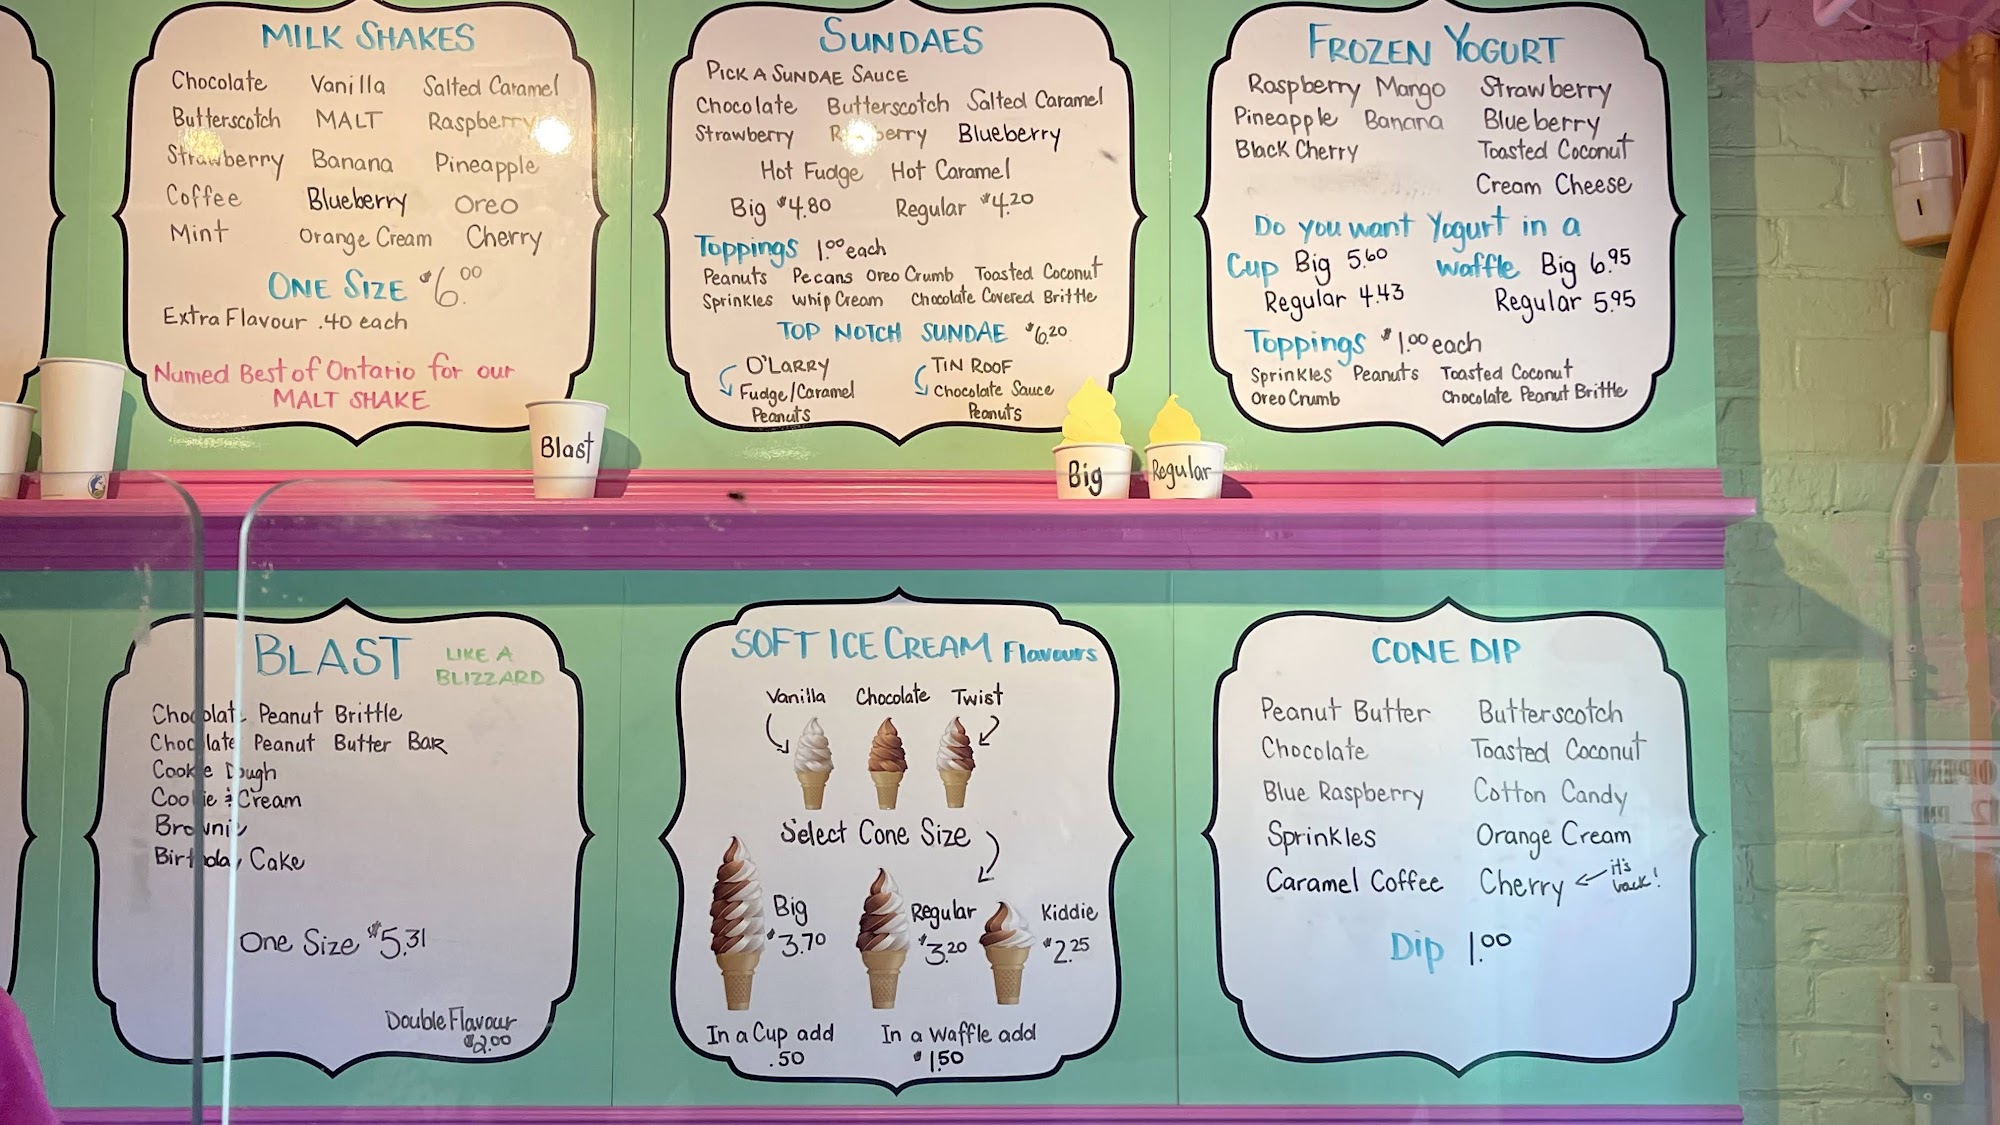 MILK SHAKES
Chocolate Vanilla Salted Caramel
Butterscotch MALT Raspberry
Strawberry Banana Pineapple
Coffee Blueberry Oreo
Mint Orange Cream Cherry
ONE SIZE $6.00
Extra Flavour .40 each
Named Best of Ontario for our
MALT SHAKE
SUNDAES
PICK A SUNDAE SAUCE
Chocolate Butterscotch Salted Caramel
Strawberry Raspberry Blueberry
Hot Fudge Hot Caramel
Big $4.80 Regular $4.20
Toppings 1.00 each
Peanuts Pecans Oreo Crumb Toasted Coconut
Sprinkles Whip Cream Chocolate Covered Brittle
TOP NOTCH SUNDAE $6.20
O'LARRY TIN ROOF
Fudge/Caramel Chocolate Sauce
Peanuts Peanuts
FROZEN YOGURT
Raspberry Mango Strawberry
Pineapple Banana Blueberry
Black Cherry Toasted Coconut
Cream Cheese
Do you want Yogurt in a
Cup Big 5.60 waffle Big 6.95
Regular 4.43 Regular 5.95
Toppings $1.00 each
Sprinkles Peanuts Toasted Coconut
Oreo Crumb Chocolate Peanut Brittle
Blast
Big
Regular
BLAST LIKE A
BLIZZARD
Chocolate Peanut Brittle
Chocolate Peanut Butter Bar
Cookie Dough
Cookie & Cream
Brownie
Birthday Cake
One Size $5.31
Double Flavour
$2.00
SOFT ICE CREAM Flavours
Vanilla Chocolate Twist
Select Cone Size
Big Regular Kiddie
$3.70 $3.20 $2.25
In a Cup add In a Waffle add
.50 $1.50
CONE DIP
Peanut Butter Butterscotch
Chocolate Toasted Coconut
Blue Raspberry Cotton Candy
Sprinkles Orange Cream
Caramel Coffee Cherry it's
back!
Dip 1.00